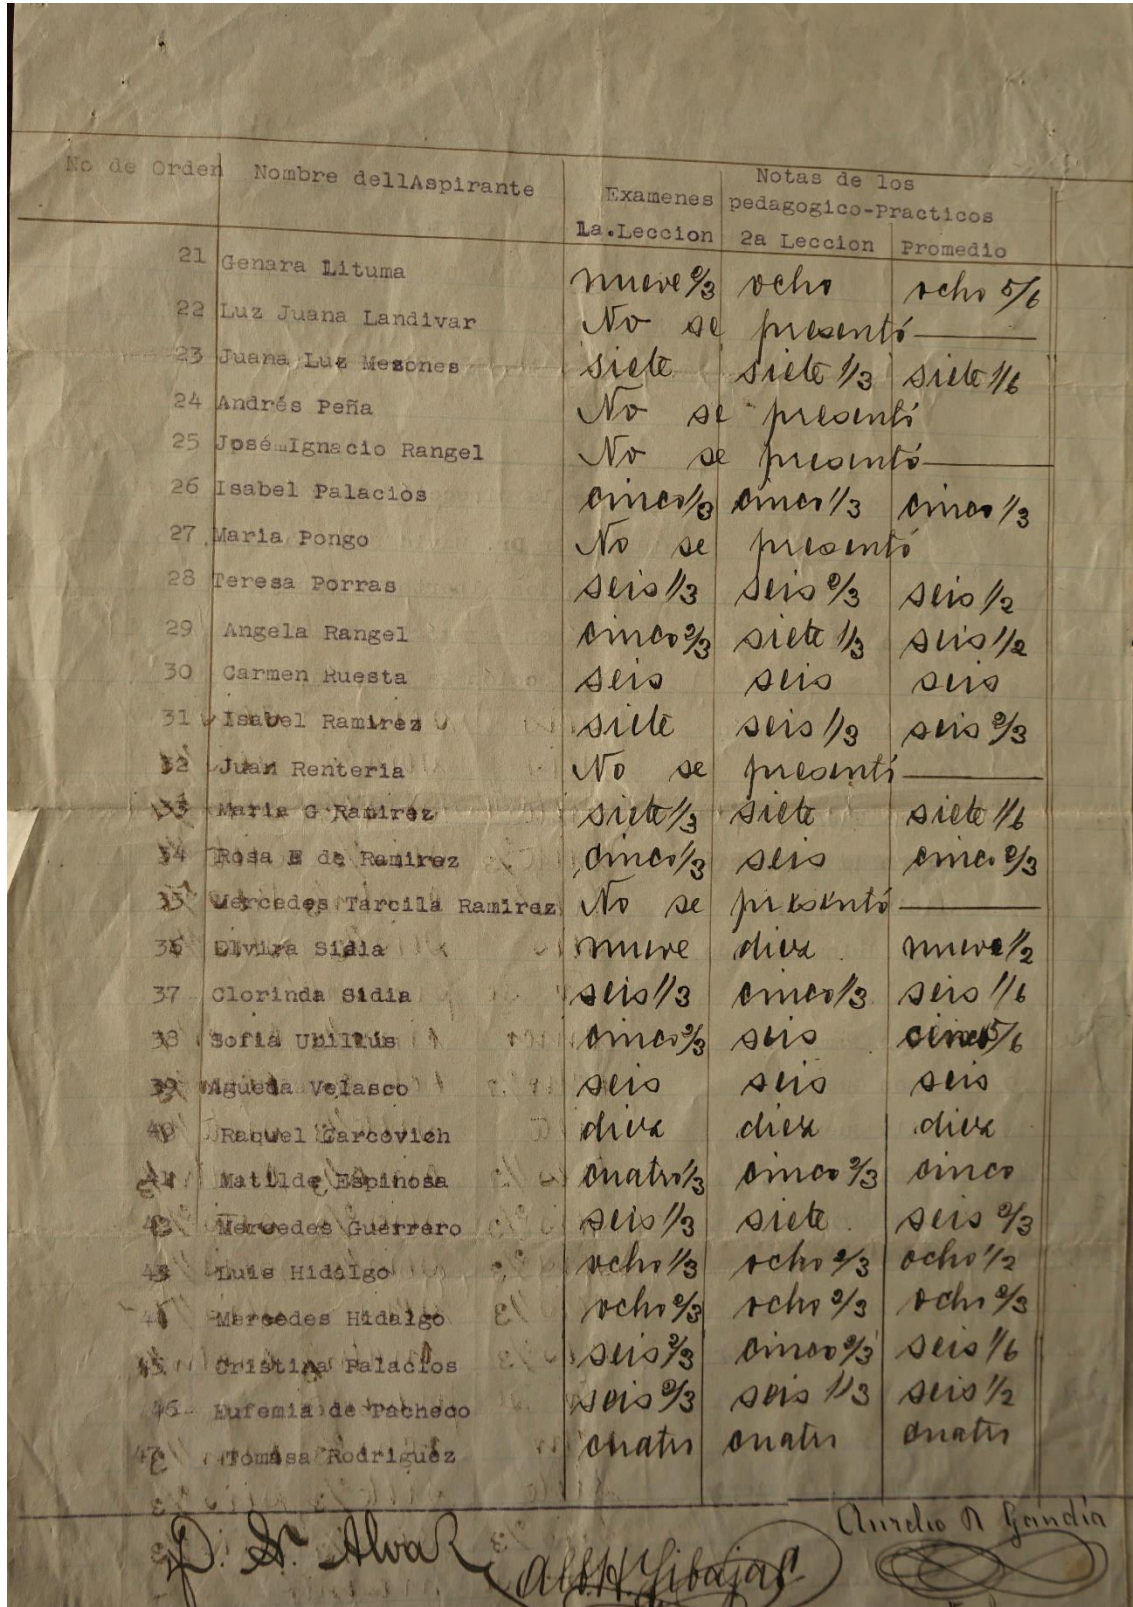 No de Orden Nombre dellAspirante Notas de los
Examenes pedagogico-Practicos
1a.Leccion 2a Leccion Promedio
21 Genara Lituma nueve 2/3 ocho ocho 5/6
22 Luz Juana Landivar No se presentó
23 Juana Luz Mesones siete siete 1/3 siete 1/6
24 Andrés Peña No se presentó
25 José Ignacio Rangel No se presentó
26 Isabel Palacios cinco 1/3 cinco 1/3 cinco 1/3
27 Maria Pongo No se presentó
28 Teresa Porras seis 1/3 seis 2/3 seis 1/2
29 Angela Rangel cinco 2/3 siete 1/3 seis 1/2
30 Carmen Ruesta seis seis seis
31 Isabel Ramirez siete seis 1/3 seis 2/3
32 Juan Renteria No se presentó
33 Maria G Ramirez siete 1/3 siete siete 1/6
34 Rosa E de Ramirez cinco 1/3 seis cinco 2/3
35 Mercedes Tarcila Ramirez No se presentó
36 Elvira Sidia nueve diez nueve 1/2
37 Clorinda Sidia seis 1/3 cinco 1/3 seis 1/6
38 Sofia Ubillús cinco 2/3 seis cinco 5/6
39 Agueda Velasco seis seis seis
40 Raquel Carcovich diez diez diez
41 Matilde Espinosa cuatro 1/3 cinco 2/3 cinco
42 Mercedes Guerrero seis 1/3 siete seis 2/3
43 Luis Hidalgo ocho 1/3 ocho 2/3 ocho 1/2
44 Mercedes Hidalgo ocho 2/3 ocho 2/3 ocho 2/3
45 Cristina Palacios seis 2/3 cinco 2/3 seis 1/6
46 Eufemia de Pacheco seis 2/3 seis 1/3 seis 1/2
47 Tomasa Rodriguez cuatro cuatro cuatro
Aurelio A Gandía